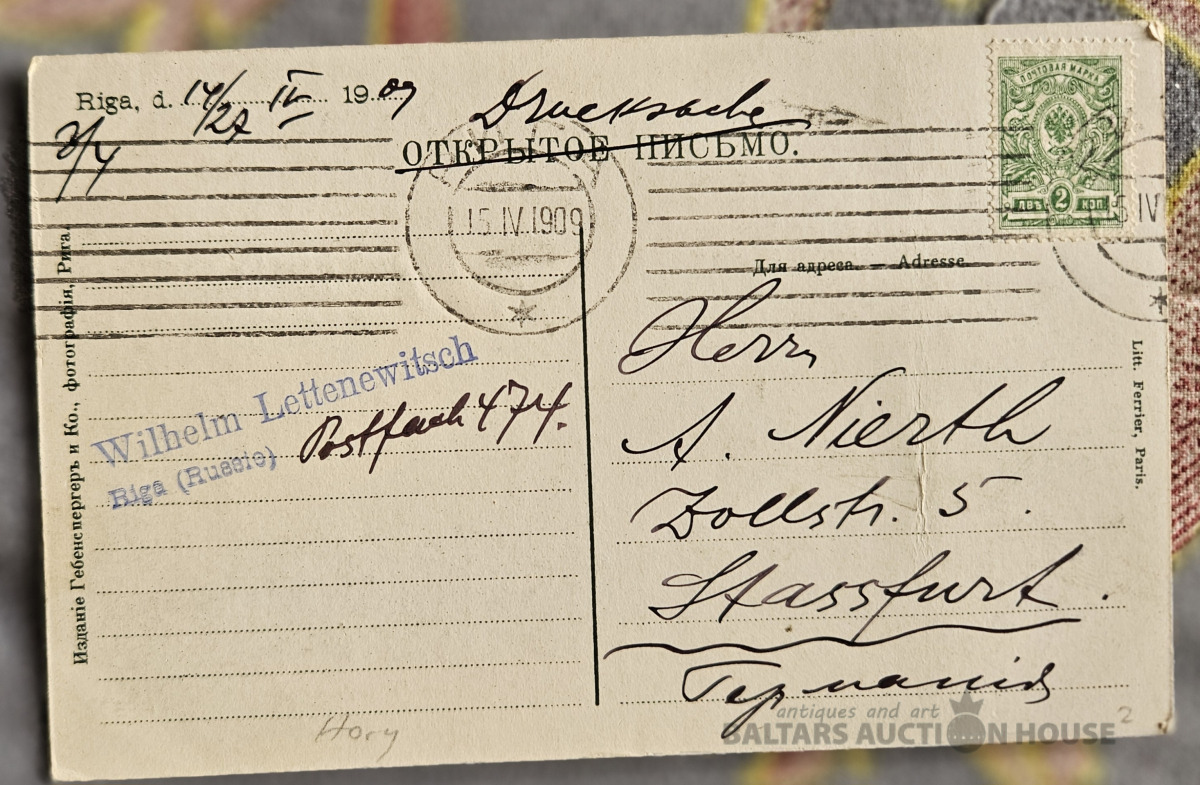 Riga, d. 14/27 IV 1909
3/4
Drucksache
ОТКРЫТОЕ ПИСЬМО.
МАРКА
ДВѢ 2 КОП.
15.IV.1909
IV
Для адреса. — Adresse.
Herrn
A. Nierth
Zollstr. 5.
Stassfurt.
Германія
Wilhelm Lettenewitsch
Riga (Russie)
Postfach 474.
Изданіе Гебенспергеръ и Ко., фотографія, Рига.
Litt. Ferrier, Paris.
Hory
2
antiques and art
BALTARS AUCTION HOUSE